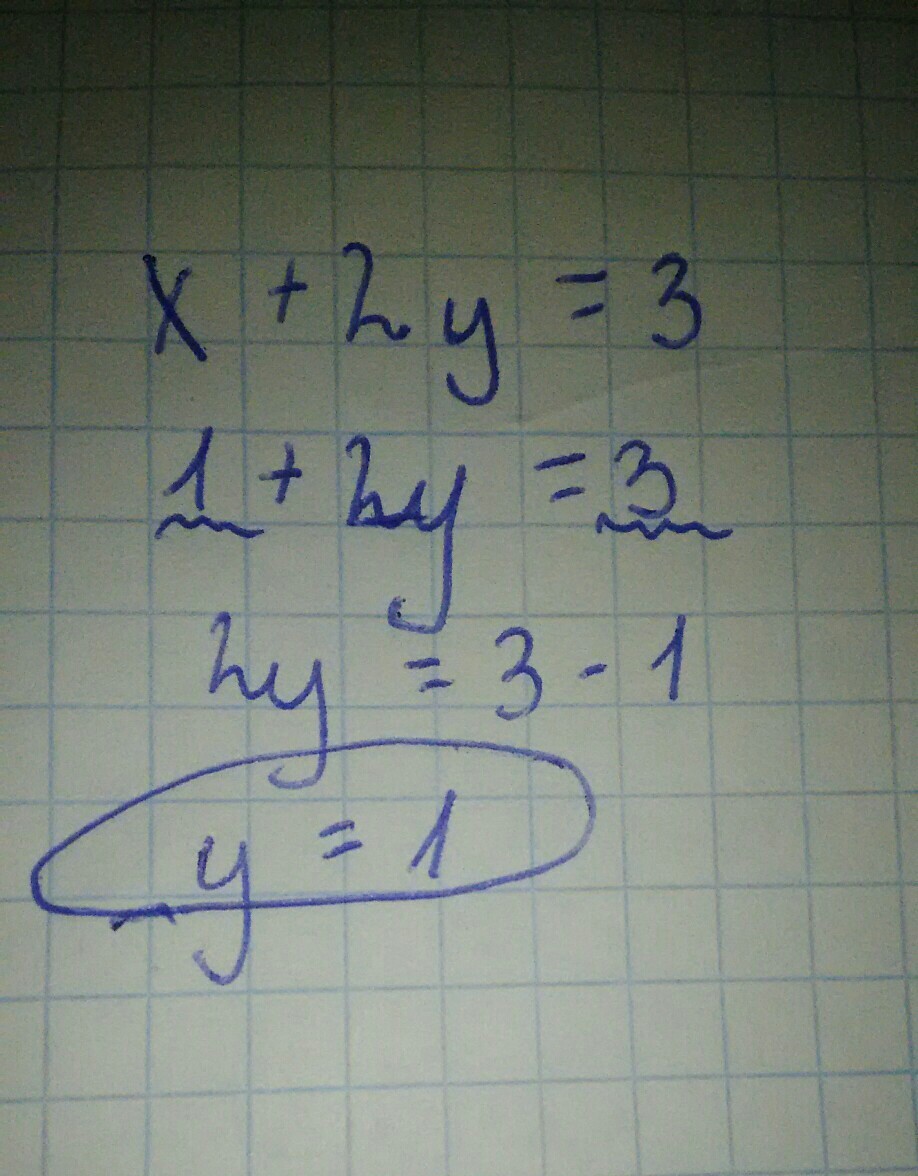 x + 2y = 3
1 + 2y = 3
2y = 3 - 1
y = 1